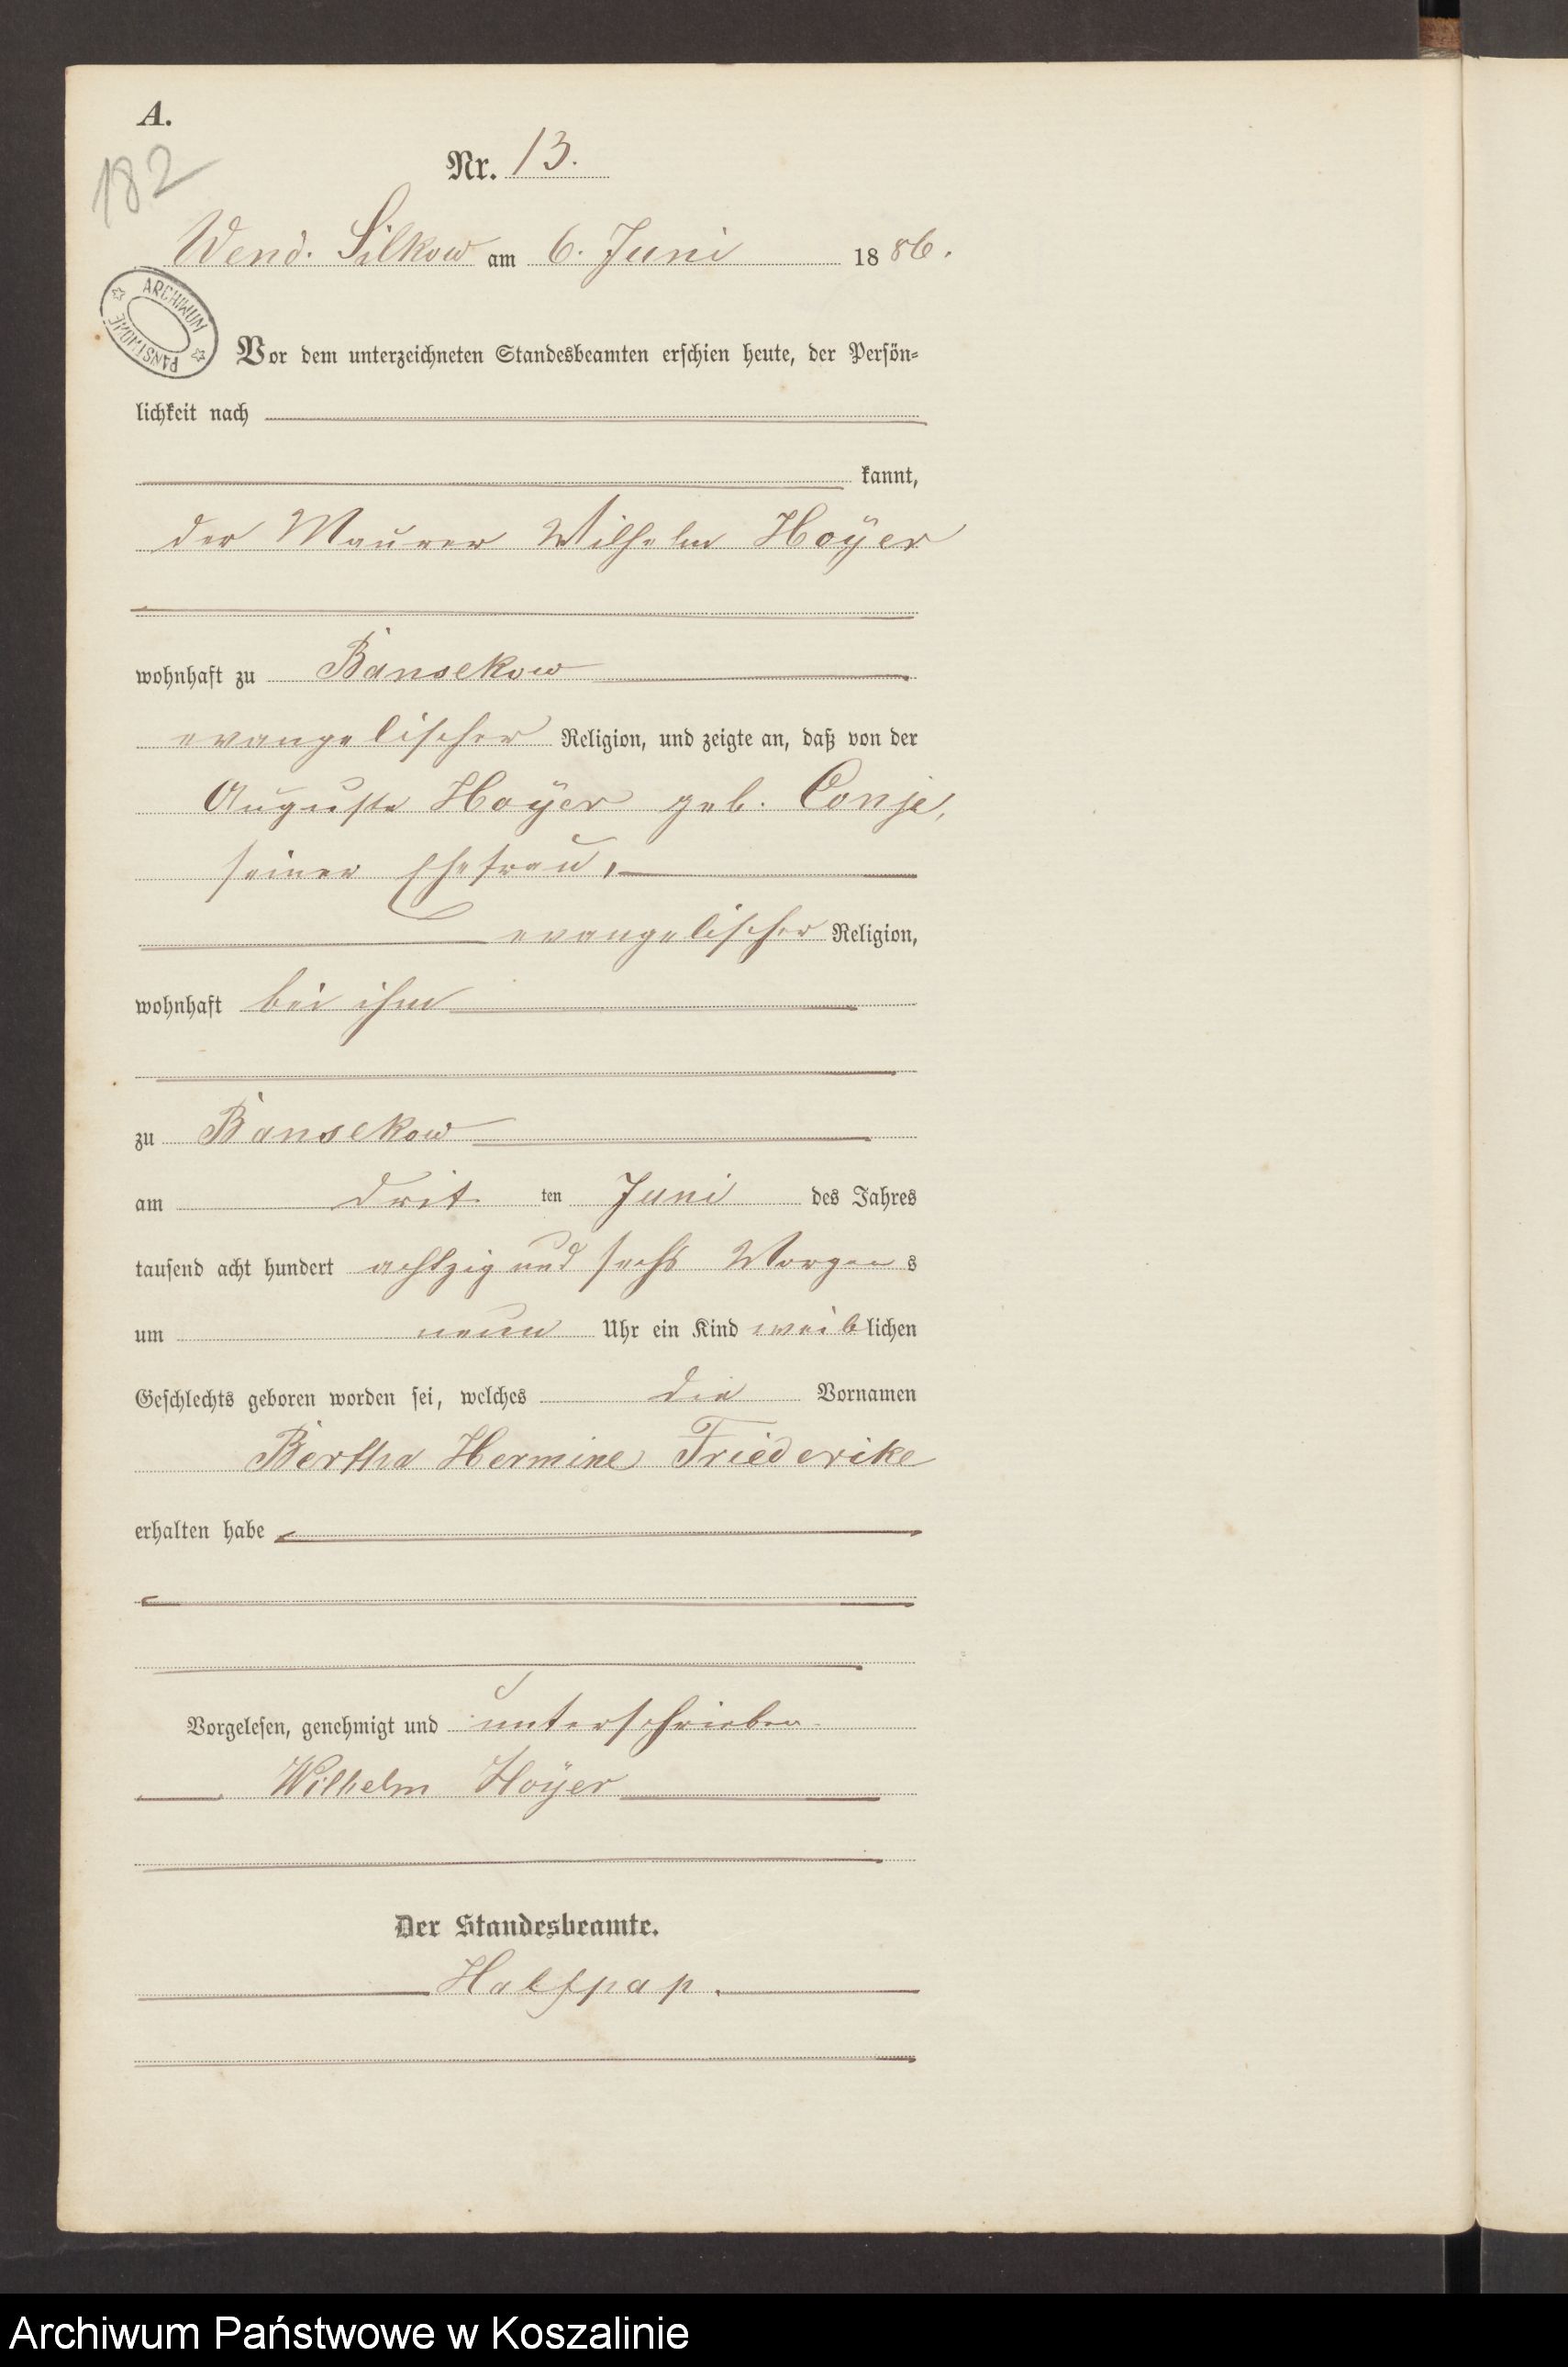 A.
182
Nr. 13.
Wend. Silkow am 6. Juni 1886.
ARCHIWUM PAŃSTWOWE
Vor dem unterzeichneten Standesbeamten erschien heute, der Persön-
lichkeit nach
kannt,
der Maurer Wilhelm Hoÿer
wohnhaft zu Bansekow
evangelischer Religion, und zeigte an, daß von der
Auguste Hoÿer geb. Conje,
seiner Ehefrau,
evangelischer Religion,
wohnhaft bei ihm
zu Bansekow
am drit ten Juni des Jahres
tausend acht hundert achtzig und sechs Morgens
um neun Uhr ein Kind weiblichen
Geschlechts geboren worden sei, welches die Vornamen
Bertha Hermine Friederike
erhalten habe
Vorgelesen, genehmigt und unterschrieben
Wilhelm Hoÿer
Der Standesbeamte.
Halfpap.
Archiwum Państwowe w Koszalinie